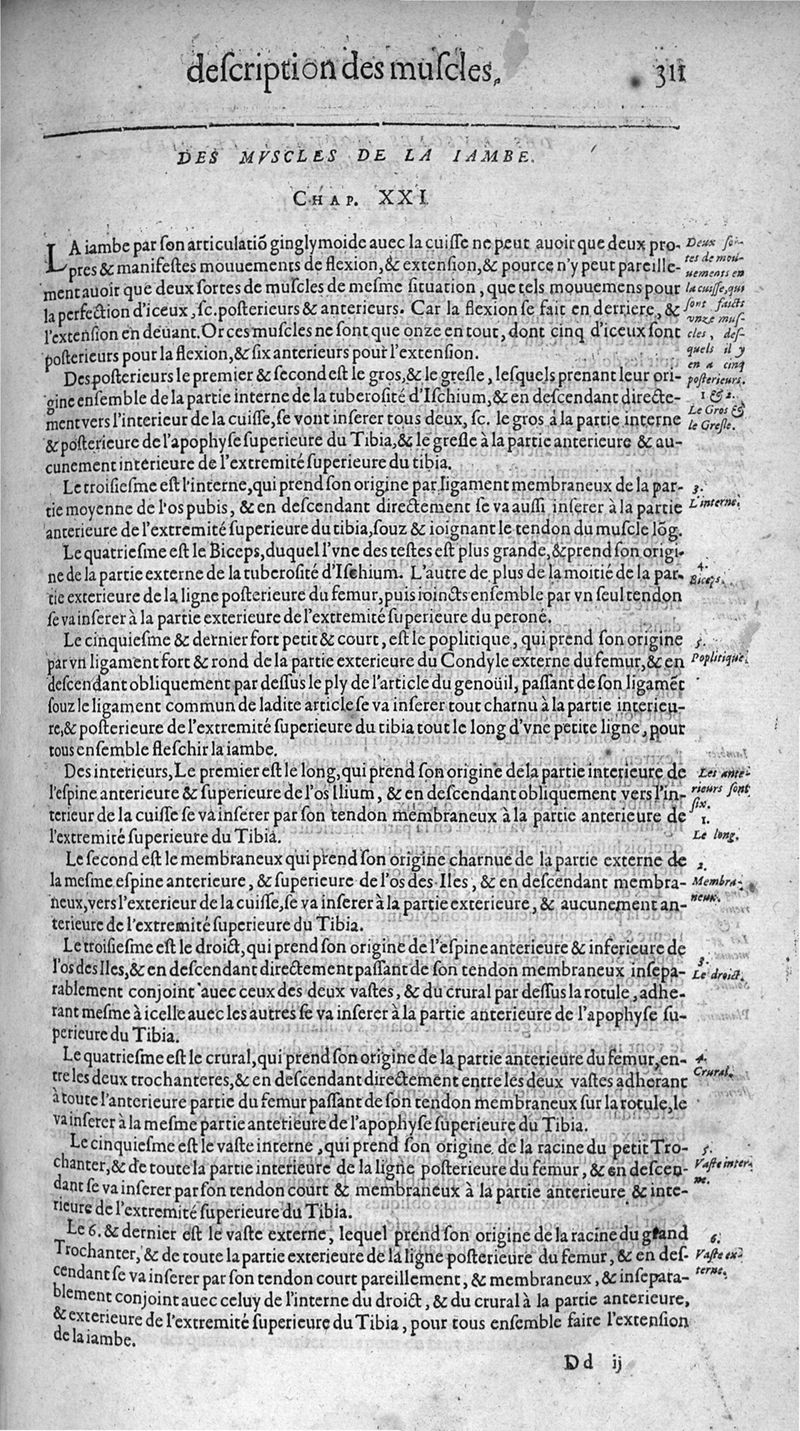 deſcription des muſcles. 311
DES MVSCLES DE LA IAMBE.
CHAP. XXI.
LA iambe par ſon articulatiõ ginglymoide auec la cuiſſe ne peut auoir que deux pro-
pres & manifeſtes mouuements de flexion, & extenſion, & pource n'y peut pareille-
ment auoir que deux ſortes de muſcles de meſme ſituation, que tels mouuemens pour
la perfection d'iceux, ſc. poſterieurs & anterieurs. Car la flexion ſe fait en derriere, &
l'extenſion en deuant. Or ces muſcles ne ſont que onze en tout, dont cinq d'iceux ſont
poſterieurs pour la flexion, & ſix anterieurs pour l'extenſion.
Deux ſor-
tes de mou-
uements en
la cuiſſe, qui
ſont faicts
vnze muſ-
cles, deſ-
quels il y
en a cinq
poſterieurs.
Des poſterieurs le premier & ſecond eſt le gros, & le greſle, leſquels prenant leur ori-
gine enſemble de la partie interne de la tuberoſité d'Iſchium, & en deſcendant directe-
ment vers l'interieur de la cuiſſe, ſe vont inſerer tous deux, ſc. le gros à la partie interne
& poſterieure de l'apophyſe ſuperieure du Tibia, & le greſle à la partie anterieure & au-
cunement interieure de l'extremité ſuperieure du tibia.
1 & 2.
Le Gros &
le Greſle.
Le troiſieſme eſt l'interne, qui prend ſon origine par ligament membraneux de la par-
tie moyenne de l'os pubis, & en deſcendant directement ſe va auſſi inſerer à la partie
anterieure de l'extremité ſuperieure du tibia, ſouz & ioignant le tendon du muſcle lõg.
3.
L'interne.
Le quatrieſme eſt le Biceps, duquel l'vne des teſtes eſt plus grande, & prend ſon origi-
ne de la partie externe de la tuberoſité d'Iſchium. L'autre de plus de la moitié de la par-
tie exterieure de la ligne poſterieure du femur, puis ioincts enſemble par vn ſeul tendon
ſe va inſerer à la partie exterieure de l'extremité ſuperieure du peroné.
4.
Biceps.
Le cinquieſme & dernier fort petit & court, eſt le poplitique, qui prend ſon origine
par vn ligament fort & rond de la partie exterieure du Condyle externe du femur, & en
deſcendant obliquement par deſſus le ply de l'article du genoüil, paſſant de ſon ligamẽt
ſouz le ligament commun de ladite article ſe va inſerer tout charnu à la partie interieu-
re, & poſterieure de l'extremité ſuperieure du tibia tout le long d'vne petite ligne, pour
tous enſemble fleſchir la iambe.
5.
Poplitique.
Des interieurs, Le premier eſt le long, qui prend ſon origine de la partie interieure de
l'eſpine anterieure & ſuperieure de l'os Ilium, & en deſcendant obliquement vers l'in-
terieur de la cuiſſe ſe va inſerer par ſon tendon membraneux à la partie anterieure de
l'extremité ſuperieure du Tibia.
Les ante-
rieurs ſont
ſix.
1.
Le long.
Le ſecond eſt le membraneux qui prend ſon origine charnue de la partie externe de
la meſme eſpine anterieure, & ſuperieure de l'os des Iles, & en deſcendant membra-
neux, vers l'exterieur de la cuiſſe, ſe va inſerer à la partie exterieure, & aucunement an-
terieure de l'extremité ſuperieure du Tibia.
2.
Membra-
neux.
Le troiſieſme eſt le droict, qui prend ſon origine de l'eſpine anterieure & inferieure de
l'os des Iles, & en deſcendant directement paſſant de ſon tendon membraneux inſepa-
rablement conjoint auec ceux des deux vaſtes, & du crural par deſſus la rotule, adhe-
rant meſme à icelle auec les autres ſe va inſerer à la partie anterieure de l'apophyſe ſu-
perieure du Tibia.
3.
Le droict.
Le quatrieſme eſt le crural, qui prend ſon origine de la partie anterieure du femur, en-
tre les deux trochanteres, & en deſcendant directement entre les deux vaſtes adherant
à toute l'anterieure partie du femur paſſant de ſon tendon membraneux ſur la rotule, ſe
va inſerer à la meſme partie anterieure de l'apophyſe ſuperieure du Tibia.
4.
Crural.
Le cinquieſme eſt le vaſte interne, qui prend ſon origine de la racine du petit Tro-
chanter, & de toute la partie interieure de la ligne poſterieure du femur, & en deſcen-
dant ſe va inſerer par ſon tendon court & membraneux à la partie anterieure & inte-
rieure de l'extremité ſuperieure du Tibia.
5.
Vaſte inter-
ne.
Le 6. & dernier eſt le vaſte externe, lequel prend ſon origine de la racine du grand
Trochanter, & de toute la partie exterieure de la ligne poſterieure du femur, & en deſ-
cendant ſe va inſerer par ſon tendon court pareillement, & membraneux, & inſepara-
blement conjoint auec celuy de l'interne du droict, & du crural à la partie anterieure,
& exterieure de l'extremité ſuperieure du Tibia, pour tous enſemble faire l'extenſion
de la iambe.
6.
Vaſte ex-
terne.
Dd ij